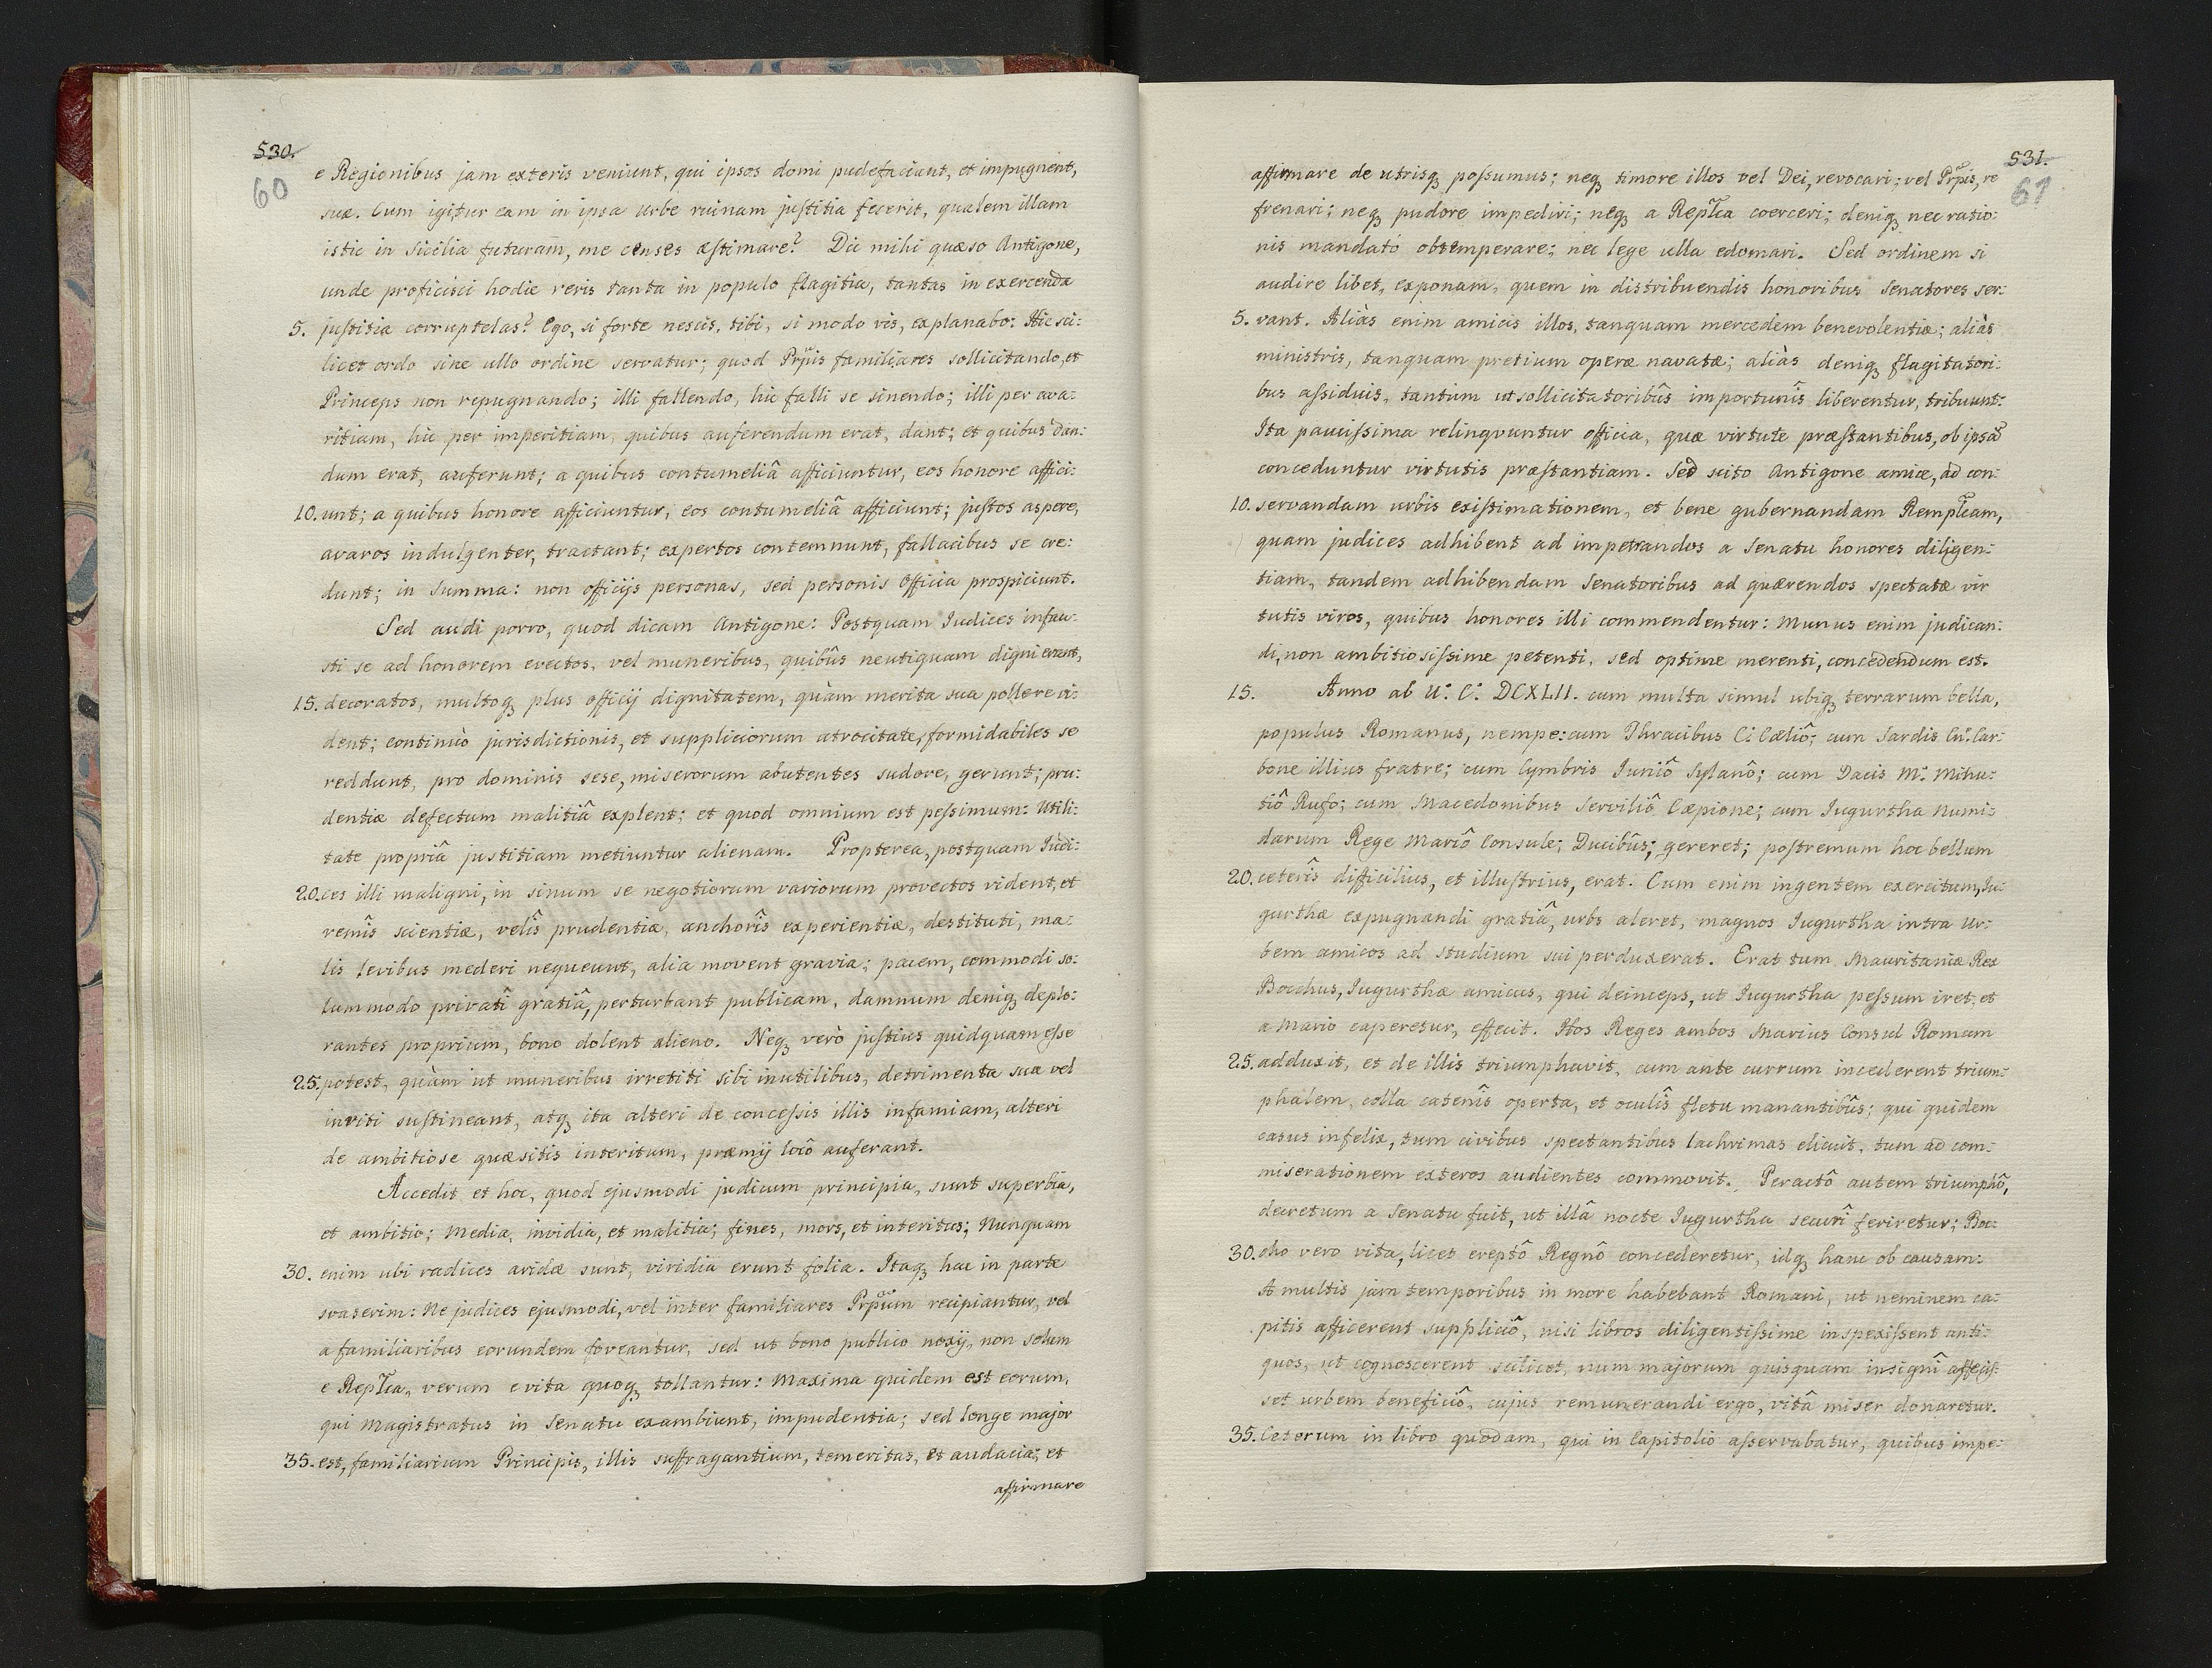 530.
60
e Regionibus jam exteris veniunt, qui ipsos domi pudefaciant, et impugnent,
suæ. Cum igitur eam in ipsa urbe ruinam justitia fecerit, qualem illam
istic in Sicilia futuram, me censes æstimare? Dic mihi quæso Antigone,
unde proficisci hodie reris tanta in populo flagitia, tantas in exercenda
5. justitia corruptelas? Ego, si forte nescis, tibi, si modo vis, explanabo: Hic sci:
licet ordo sine ullo ordine servatur; quod Prpis familiares sollicitando, et
Princeps non repugnando; illi fallendo, hic falli se sinendo; illi per ava:
ritiam, hic per imperitiam, quibus auferendum erat, dant; et quibus dan:
dum erat, auferunt; a quibus contumeliâ afficiuntur, eos honore affici:
10. unt; a quibus honore afficiuntur, eos contumeliâ afficiunt; justos aspere,
avaros indulgenter, tractant; expertos contemnunt, fallacibus se cre:
dunt; in summa: non officijs personas, sed personis officia prospiciunt.
Sed audi porro, quod dicam Antigone: Postquam Iudices infau:
sti se ad honorem evectos, vel muneribus, quibûs neutiquam digni erant,
15. decoratos, multoq3 plus officij dignitatem, quàm merita sua pollere vi:
dent; continuò jurisdictionis, et suppliciorum atrocitate, formidabiles se
reddunt, pro dominis sese, miserorum abutentes sudore, gerunt; pru:
dentiæ defectum malitiâ explent; et quod omnium est pessimum: Utili:
tate propriâ justitiam metiuntur alienam. Propterea, postquam Iudi:
20. ces illi maligni, in sinum se negotiorum variorum provectos vident, et
remîs scientiæ, velîs prudentiæ, anchorîs experientiæ, destituti, ma:
lis levibus mederi nequeunt, alia movent gravia; pacem, commodi so:
lummodo privatî gratiâ, perturbant publicam, damnum deniq3 deplo:
rantes proprium, bono dolent alieno. Neq3 verò justius quidquam esse
25. potest, quàm ut muneribus irretiti sibi inutilibus, detrimenta sua vel
inviti sustineant, atq3 ita alteri de concessis illis infamiam, alteri
de ambitiose quæsitis interitum, præmij locô auferant.
Accedit et hoc, quod ejusmodi judicum principia, sunt superbia,
et ambitio; media, invidia, et malitia; fines, mors, et interitus; Nunquam
30. enim ubi radices aridæ sunt, viridia erunt folia. Itaq3 hac in parte
svaserim: Ne judices ejusmodi, vel inter familiares Prpum recipiantur, vel
a familiaribus eorundem foveantur, sed ut bono publico noxij, non solum
e Replca, verum e vita quoq3 tollantur: Maxima quidem est eorum,
qui Magistratus in Senatu exambiunt, impudentia; sed longe major
35. est, familiarium Principis, illis suffragantium, temeritas, et audacia; et
affirmare
531.
61
affirmare de utrisq3 possumus; neq3 timore illos vel Dei, revocari; vel Prpis, re
frenari; neq3 pudore impediri; neq3 a Replca coerceri; deniq3 nec ratio:
nis mandatô obtemperare; nec lege ulla edomari. Sed ordinem si
audire libet, exponam, quem in distribuendis honoribus Senatores ser:
5. vant. Aliàs enim amicis illos, tanquam mercedem benevolentiæ; aliàs
ministris, tanquam pretium operæ navatæ; aliàs deniq3 flagitatori:
bus assiduis, tantum ut sollicitatoribûs importunîs liberentur, tribuunt:
Ita paucissima relinqvuntur officia, quæ virtute præstantibus, ob ipsã
conceduntur virtutis præstantiam. Sed scito Antigone amice, ad con:
10. servandam urbis existimationem, et bene gubernandam Remplcam,
quam judices adhibent ad impetrandos a Senatu honores diligen:
tiam, tandem adhibendam Senatoribus ad quærendos spectatæ vir
tutis viros, quibus honores illi commendentur: Munus enim judican:
di, non ambitiosissime petenti, sed optime merenti, concedendum est.
15. Anno ab U. C. DCXLII. cum multa simul ubiq3 terrarum bella,
populus Romanus, nempe: cum Thracibus C: Cæliô; cum Sardis Cn: Car:
bone illius fratre; cum Cymbris Juniô Sylanô; cum Dacis M. Minu:
tiô Rufo; cum Macedonibus Serviliô Cæpione; cum Iugurtha Numi:
darum Rege Mariô Consule; Ducibûs; gereret; postremum hoc bellum
20. ceterîs difficilius, et illustrius, erat. Cum enim ingentem exercitum, Iu:
gurthæ expugnandi gratiâ, urbs aleret, magnos Iugurtha intra Ur:
bem amicos ad studium sui perduxerat. Erat tum Mauritaniæ Rex
Bocchus, Iugurthæ amicus, qui deinceps, ut Iugurtha pessum iret, et
a Mario caperetur, effecit. Hos Reges ambos Marius Consul Romam
25. adduxit, et de illis triumphavit, cum ante currum incederent trium:
phalem, colla catenîs operta, et oculîs fletu manantibûs; qui quidem
casus infelix, tum civibus spectantibus lachrimas elicuit, tum ad com:
miserationem exteros audientes commovit. Peractô autem triumphô,
decretum a Senatu fuit, ut illâ nocte Iugurtha securî feriretur; Boc:
30. cho vero vita, licet ereptô Regnô concederetur, idq3 hanc ob causam:
A multis jam temporibus in more habebant Romani, ut neminem ca:
pitis afficerent suppliciô, nisi libros diligentissime inspexissent anti:
quos, ut cognoscerent scilicet, num majorum quisquam insignî affecis:
set urbem beneficiô, cujus remunerandi ergo, vitâ miser donaretur.
35. Ceterum in libro quodam, qui in Capitolio asservabatur, quibus impe: